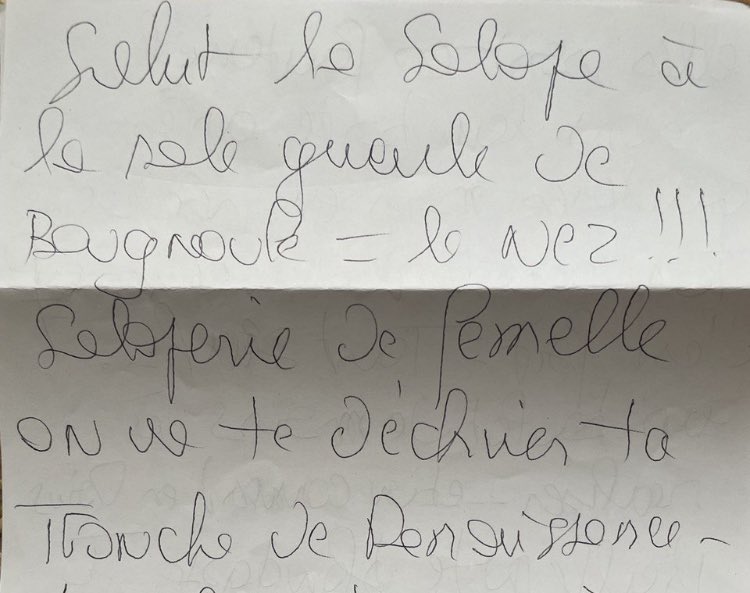 Salut la Salope à
la sale gueule de
Bougnoule = le NEZ !!!
Saloperie de femelle
ON va te déchirer ta
Tronche de Renaissance -